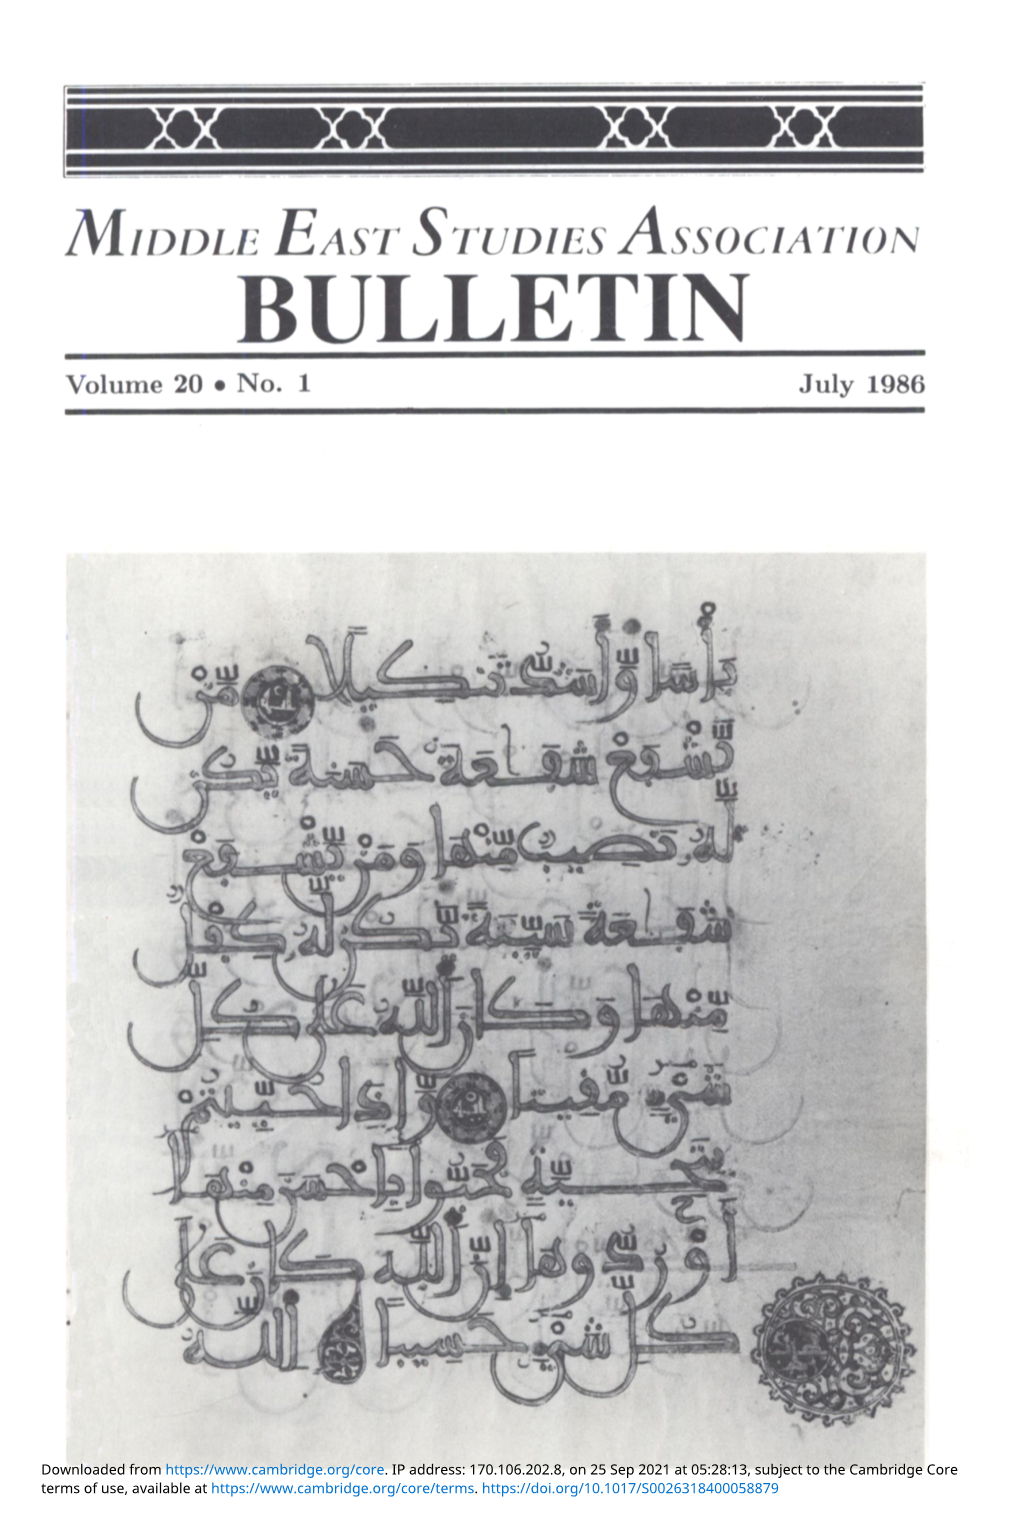 MIDDLE EAST STUDIES ASSOCIATION
BULLETIN
Volume 20 • No. 1 July 1986
بأسا وأشد تنكيلا من
يشفع شفاعة حسنة يكن
له نصيب منها ومن يشفع
شفاعة سيئة يكن له كفل
منها وكان الله على كل
شيء مقيتا وإذا حييتم
بتحية فحيوا بأحسن منها
أو ردوها إن الله كان على
كل شيء حسيبا الله
Downloaded from https://www.cambridge.org/core. IP address: 170.106.202.8, on 25 Sep 2021 at 05:28:13, subject to the Cambridge Core
terms of use, available at https://www.cambridge.org/core/terms. https://doi.org/10.1017/S0026318400058879